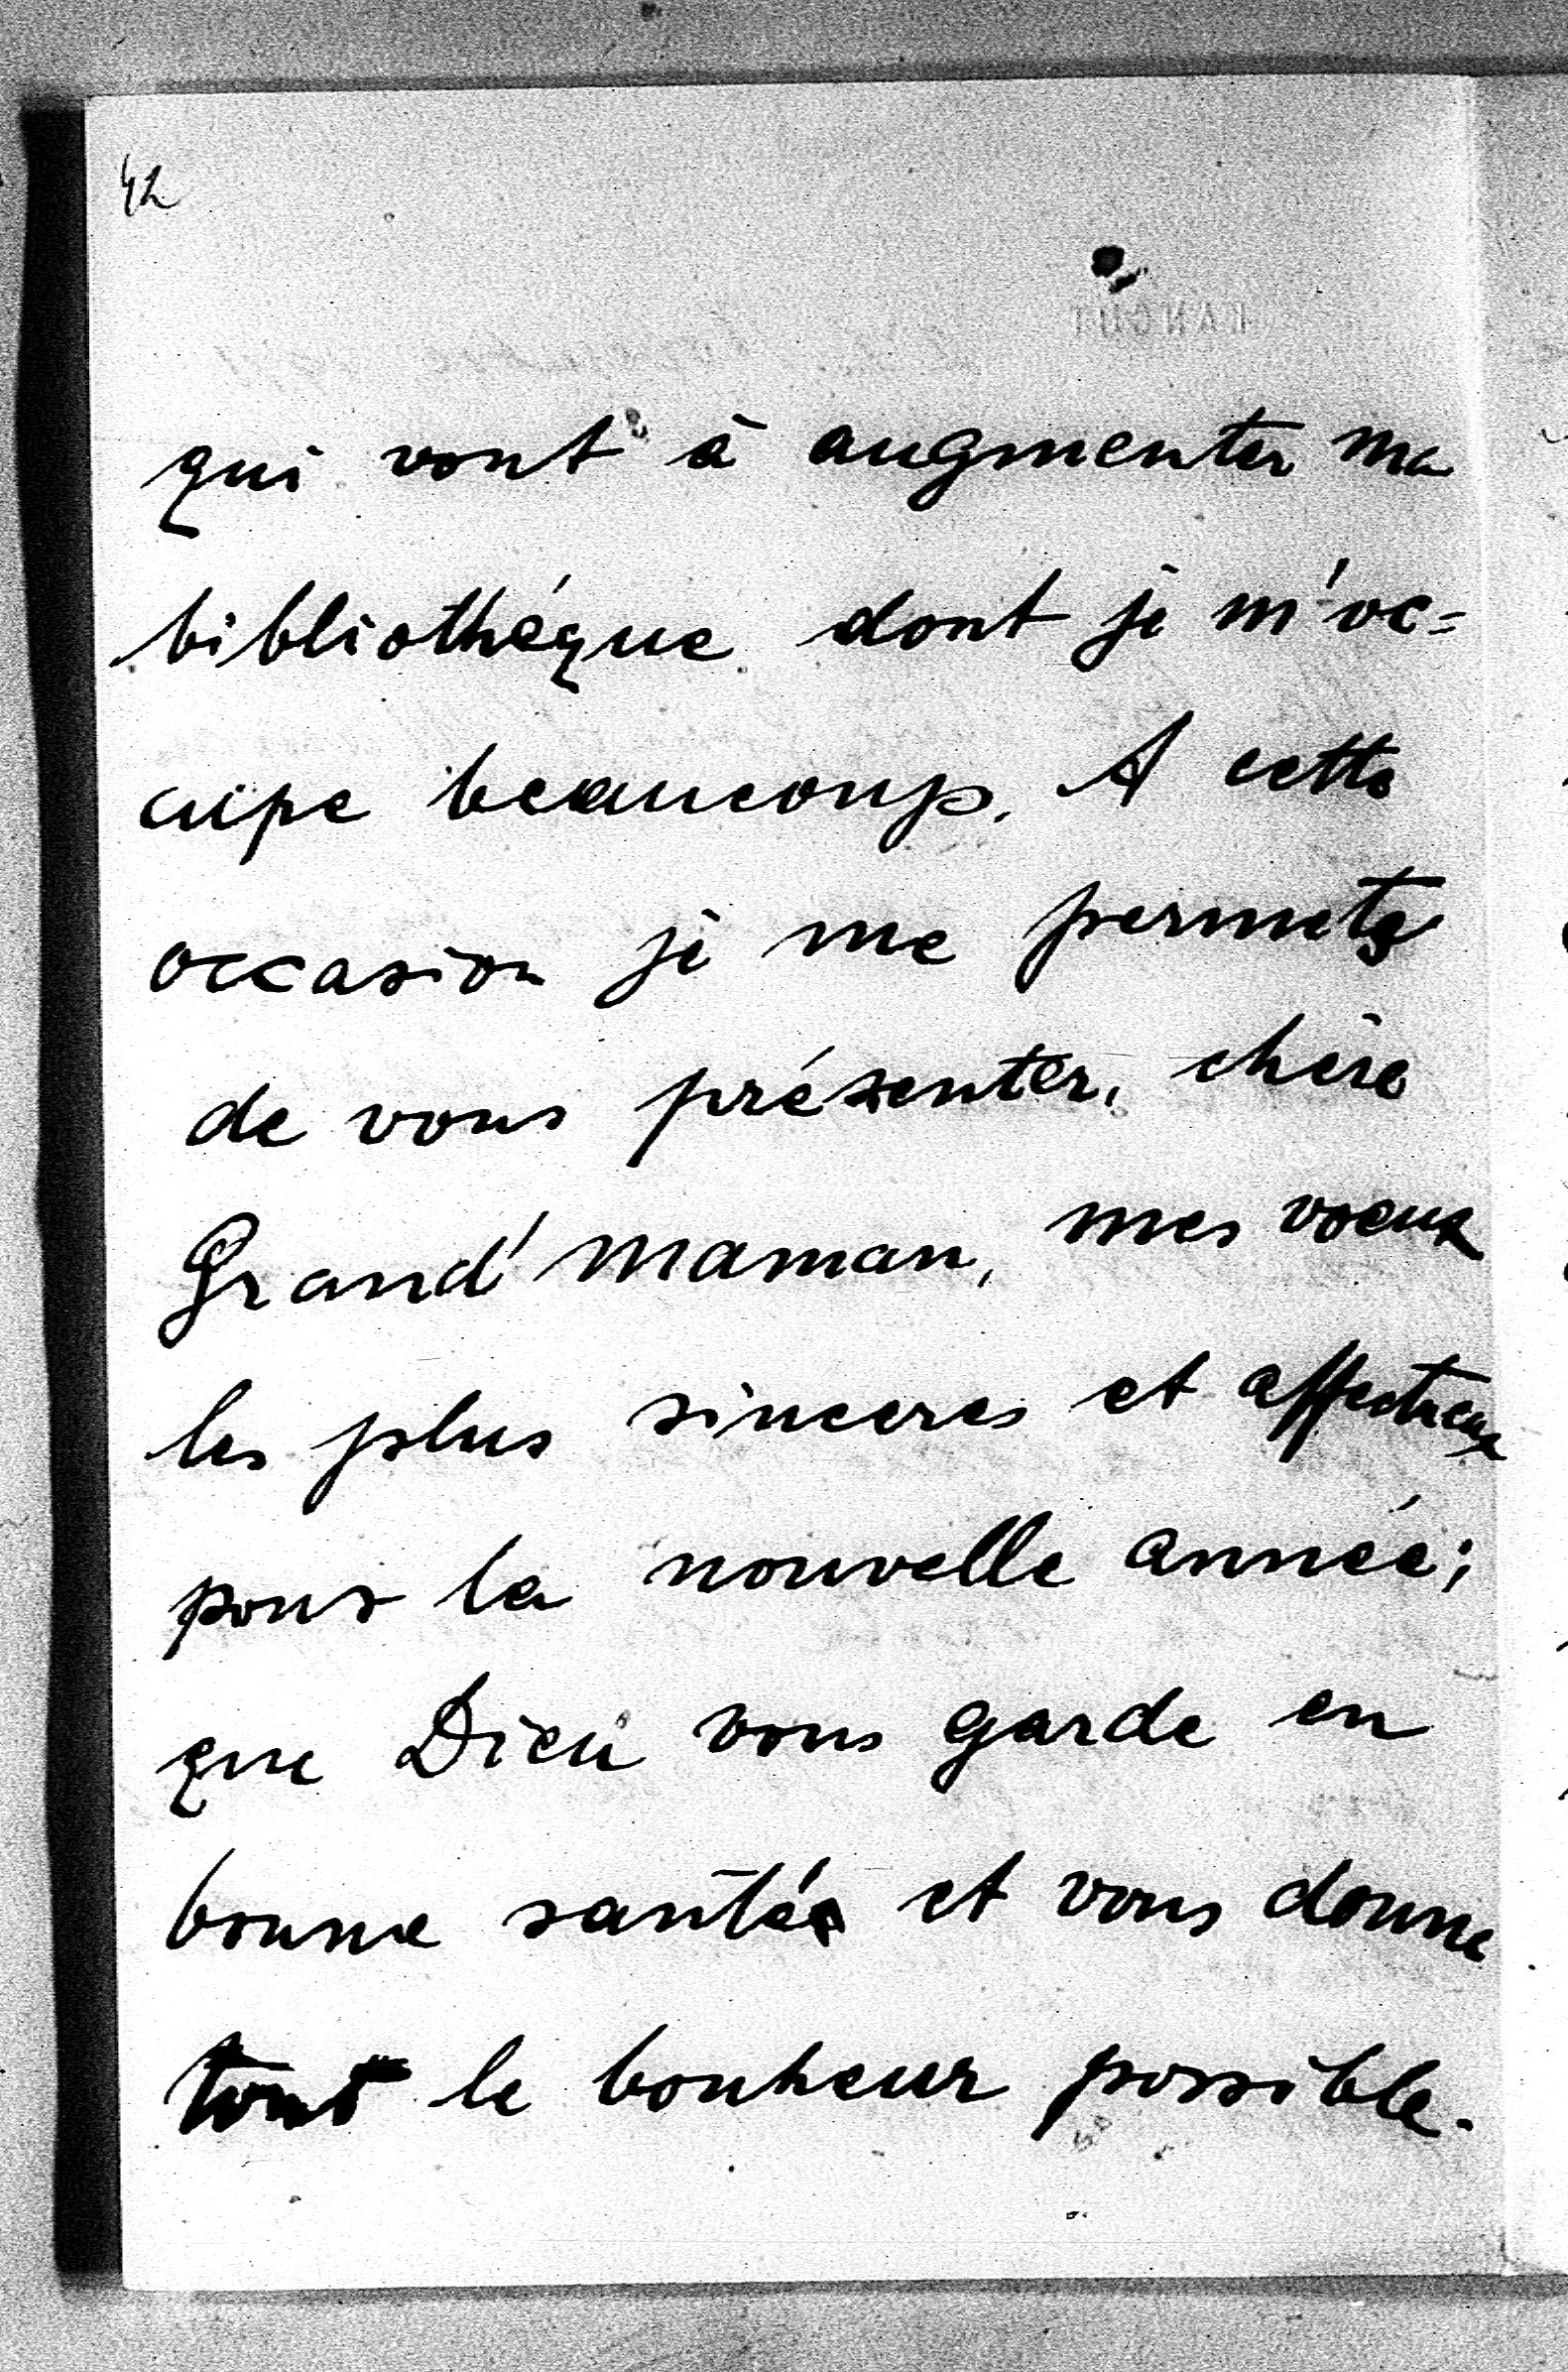 42
qui vont à augmenter ma
bibliothéque dont je m'oc=
cupe beaucoup. A cette
occasion je me permets
de vous présenter, chère
Grand' Maman, mes voeux
les plus sinceres et affectueux
pour la nouvelle année;
que Dieu vous garde en
bonne santée et vous donne
tout le bonheur possible.